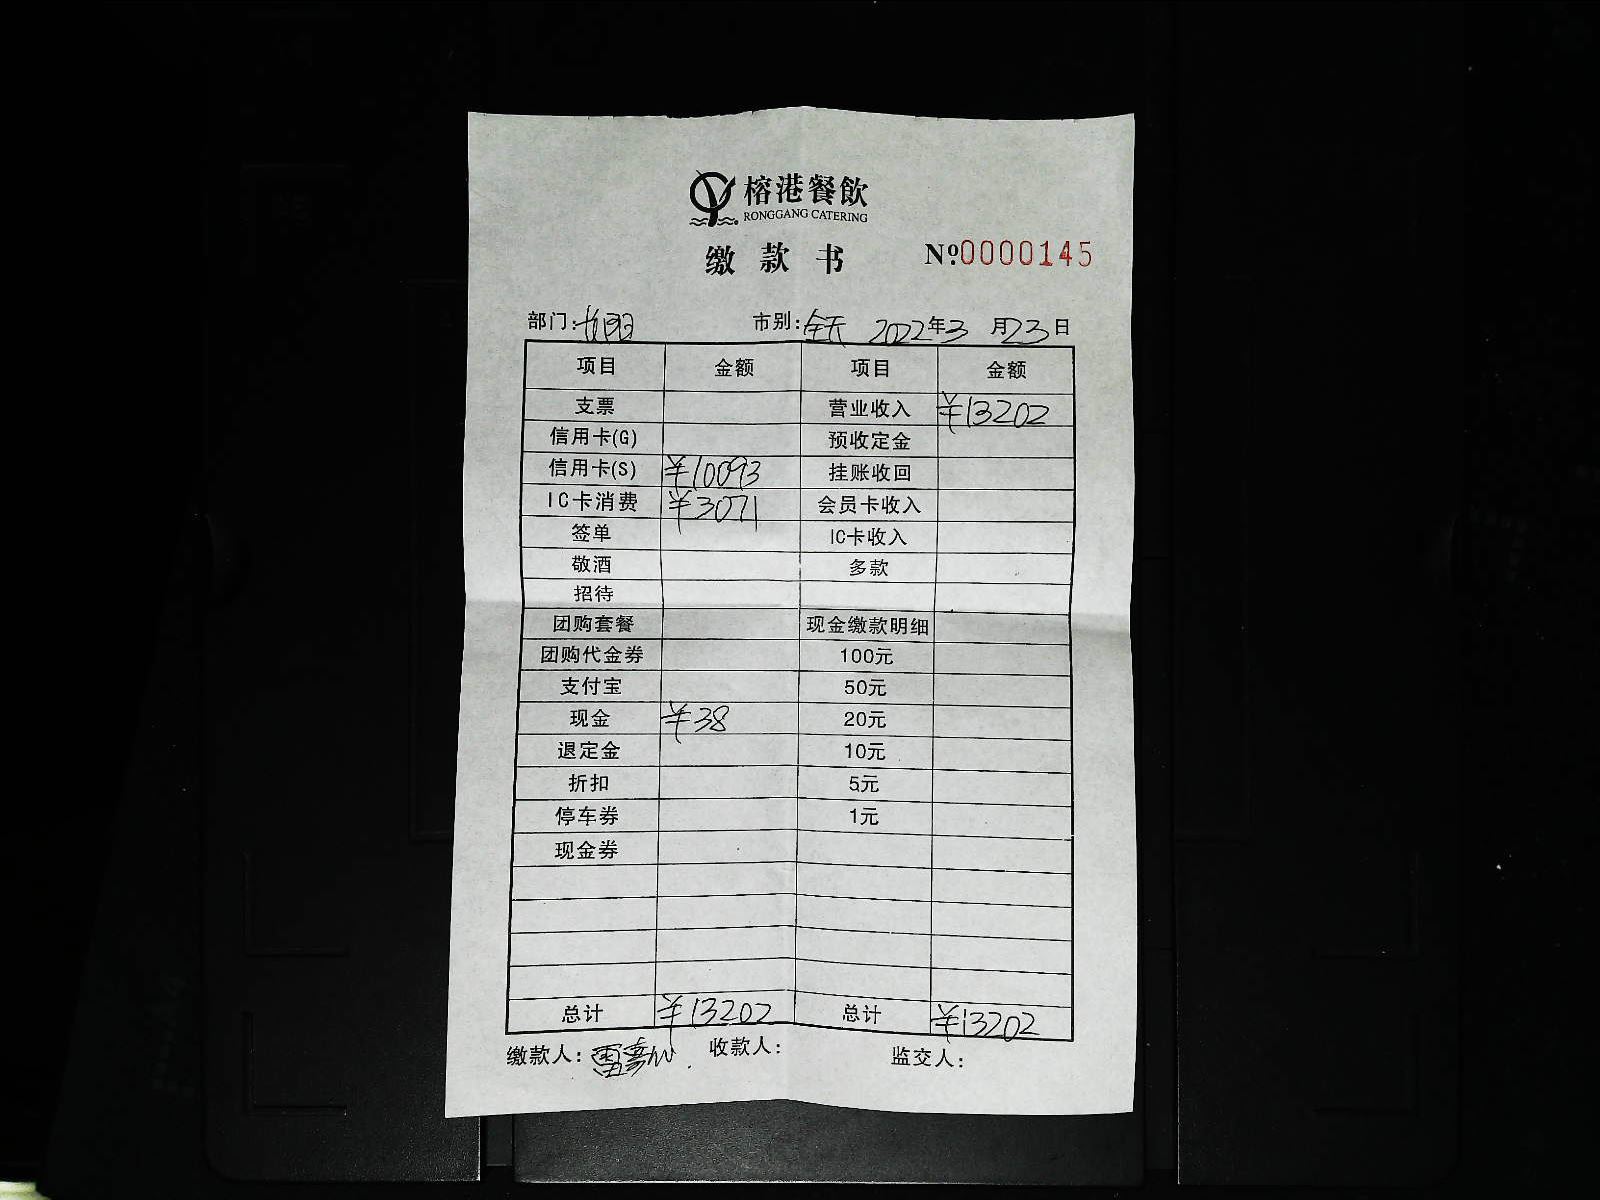 榕港餐飲
RONGGANG CATERING
缴款书 №0000145
部门: 市别:全天 2022年3月23日
项目 金额 项目 金额
支票 营业收入 ¥13202
信用卡(G) 预收定金
信用卡(S) ¥10093 挂账收回
IC卡消费 ¥3071 会员卡收入
签单 IC卡收入
敬酒 多款
招待
团购套餐 现金缴款明细
团购代金券 100元
支付宝 50元
现金 ¥38 20元
退定金 10元
折扣 5元
停车券 1元
现金券
总计 ¥13202 总计 ¥13202
缴款人: 收款人: 监交人: